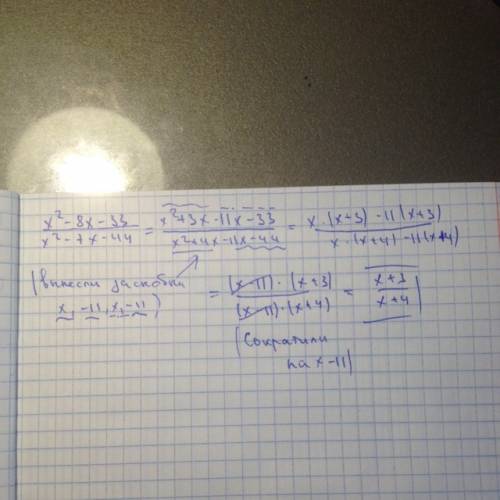 (x²-8x-33)/(x²-7x-44) = (x²+3x-11x-33)/(x²+4x-11x-44) = (x·(x+3)-11(x+3))/(x·(x+4)-11(x+4))
(вынесли за скобки
x, -11, x, -11)
= ((x-11)·(x+3))/((x-11)·(x+4)) = (x+3)/(x+4)
(Сократили
на x-11)